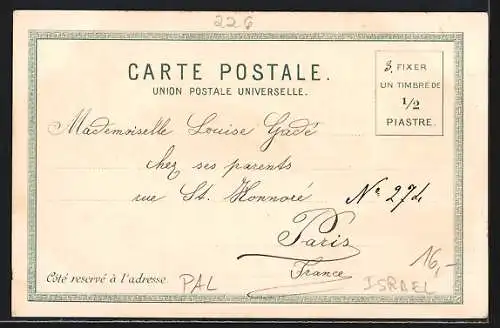 226
CARTE POSTALE.
UNION POSTALE UNIVERSELLE.
FIXER
UN TIMBRE DE
1/2
PIASTRE.
Mademoiselle Louise Gadé
chez ses parents
rue St. Honnoré No 27
Paris
France
16,-
Côté reservé à l'adresse.
PAL
ISRAEL